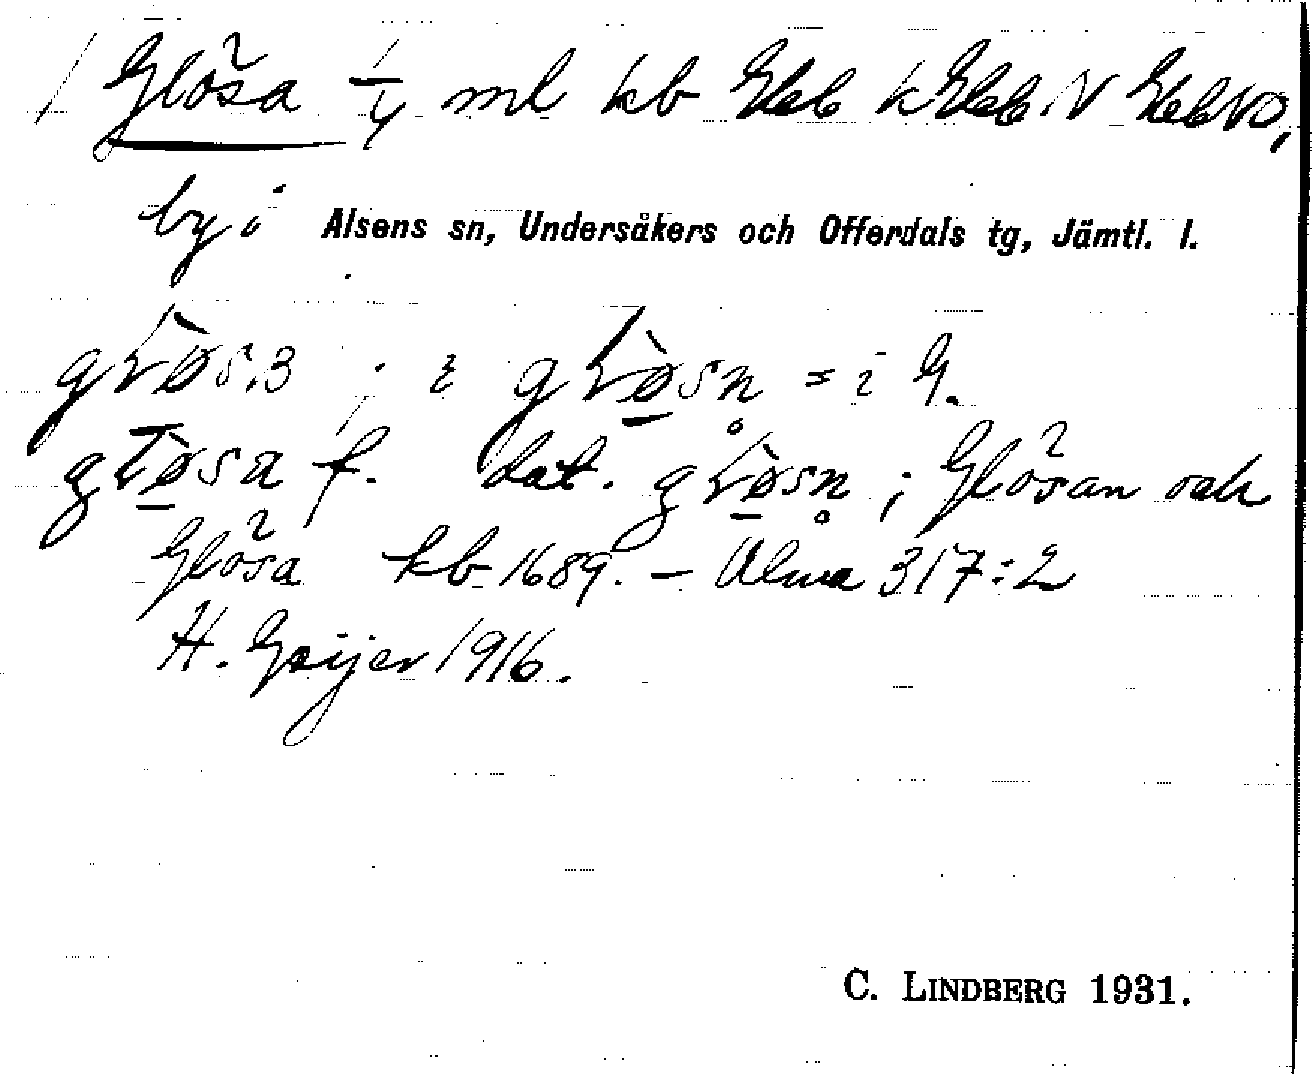 Glösa 1/4 ml kb Geb k Geb N GebNO,
by i Alsens sn, Undersåkers och Offerdals tg, Jämtl. l.
i = i G.
f. dat. ; Glösan och
Glösa kb 1689. – Ulma 317:2
H. Geijer 1916.
C. LINDBERG 1931.